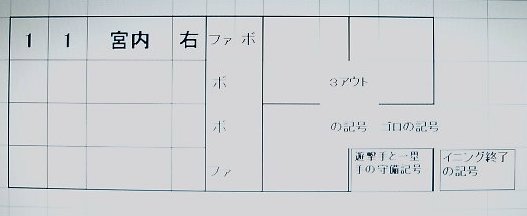 1 1 宮内 右 ファ ボ
ボ
3アウト
ボ
の記号 ゴロの記号
ファ
遊撃手と一塁
手の守備記号
イニング終了
の記号